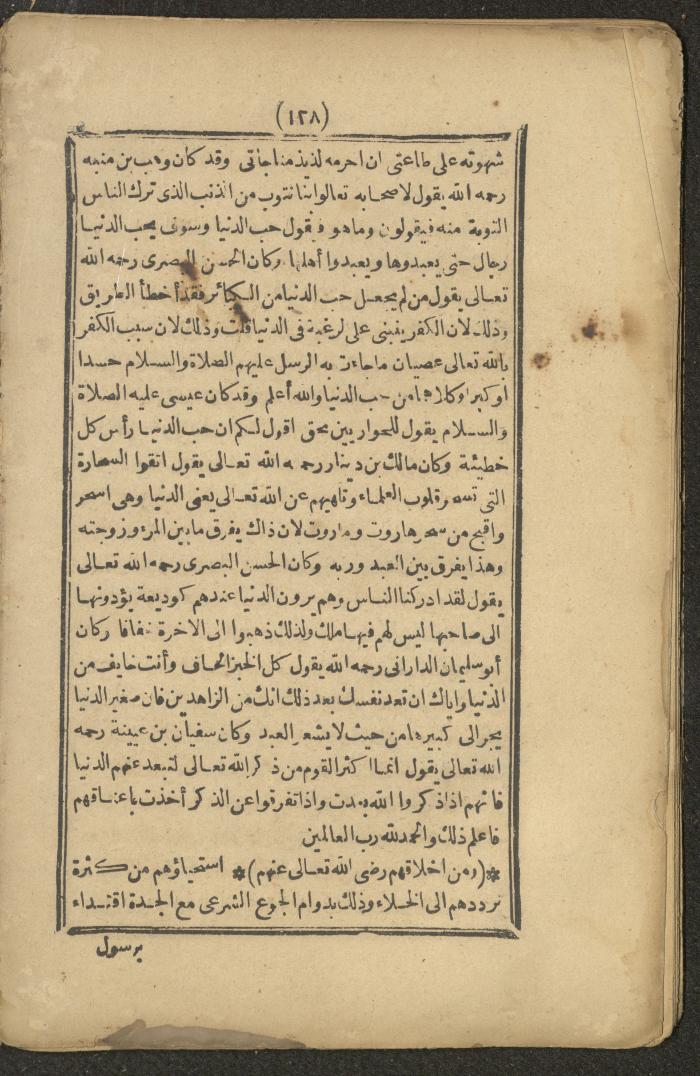 (١٢٨)
شهوته على طاعتى ان احرمه لذيذ مناجاتى وقد كان وهب بن منبه
رحمه الله يقول لاصحابه تعالوا بنا نتوب من الذنب الذى ترك الناس
التوبة منه فيقولون وما هو فيقول حب الدنيا وسوف يحب الدنيا
رجال حتى يعبدوها ويعبدوا أهلها وكان الحسن البصرى رحمه الله
تعالى يقول من لم يجعل حب الدنيا من الكبائر فقد أخطأ الطريق
وذلك لان الكفر يبتنى على الرغبة فى الدنيا قلت وذلك لان سبب الكفر
بالله تعالى عصيان ما جاءت به الرسل عليهم الصلاة والسلام حسدا
أو كبرا وكلاهما من حب الدنيا والله أعلم وقد كان عيسى عليه الصلاة
والسلام يقول للحواريين بحق اقول لكم ان حب الدنيا رأس كل
خطيئة وكان مالك بن دينار رحمه الله تعالى يقول اتقوا السحارة
التى تسحر قلوب العلماء وتلهيهم عن الله تعالى يعنى الدنيا وهى اسحر
واقبح من سحر هاروت وماروت لان ذاك يفرق ما بين المرء وزوجته
وهذا يفرق بين العبد وربه وكان الحسن البصرى رحمه الله تعالى
يقول لقد ادركنا الناس وهم يرون الدنيا عندهم كوديعة يؤدونها
الى صاحبها ليس لهم فيها ملك ولذلك ذهبوا الى الاخرة خفافا وكان
أبو سليمان الدارانى رحمه الله يقول كل الخبز الحاف وأنت خايف من
الدنيا واياك ان تعد نفسك بعد ذلك انك من الزاهدين فان صغير الدنيا
يجر الى كبيرها من حيث لا يشعر العبد وكان سفيان بن عيينة رحمه
الله تعالى يقول انما اكثر القوم من ذكر الله تعالى لتبعد عنهم الدنيا
فانهم اذا ذكروا الله بعدت واذا تفرقوا عن الذكر أخذت باعناقهم
فاعلم ذلك والحمد لله رب العالمين
*(ومن اخلاقهم رضى الله تعالى عنهم)* استحياؤهم من كثرة
ترددهم الى الخلاء وذلك بدوام الجوع الشرعى مع الجدة اقتداء
برسول